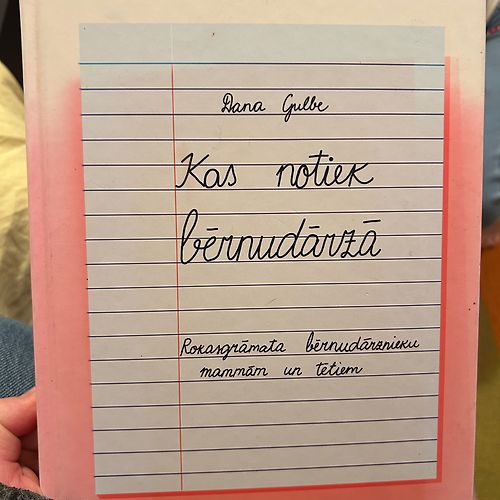 Dana Gulbe
Kas notiek
bērnudārzā
Rokasgrāmata bērnudārznieku
mammām un tētiem